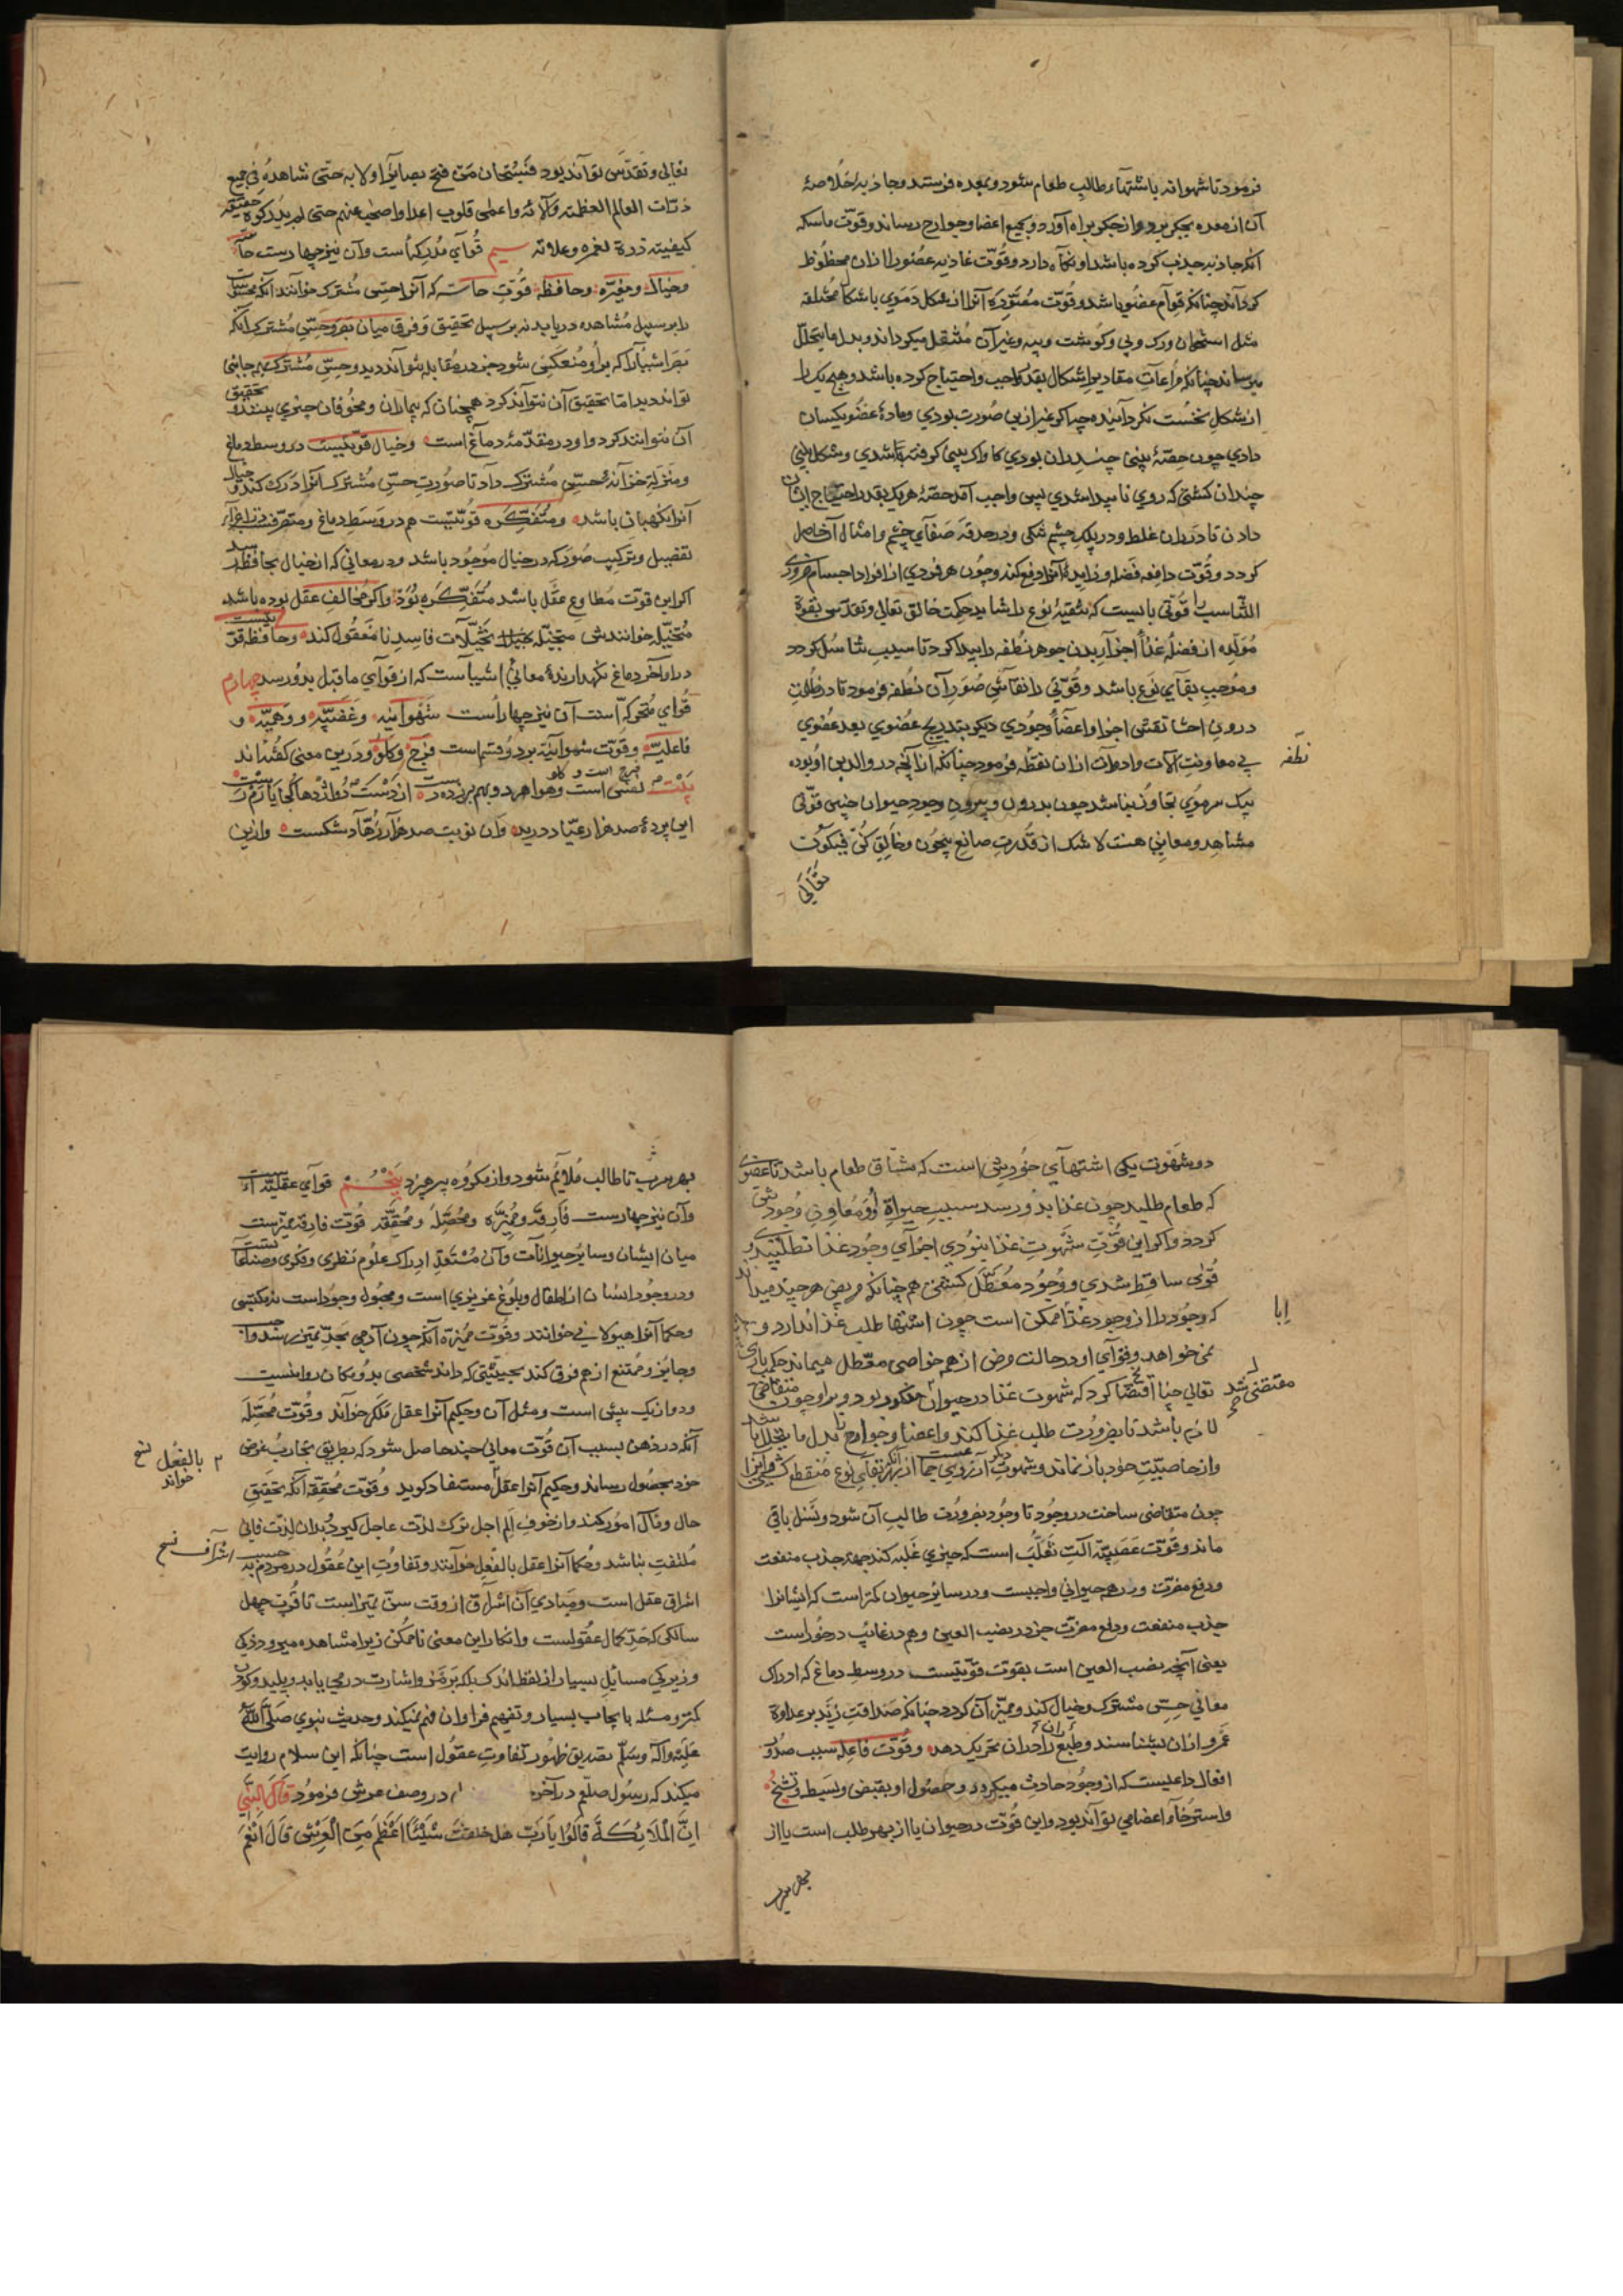 فرمود تا شهوانه باشتهاء طالب طعام شود و بمعده فرستد و جاذبه خلاصهٔ
آن از معده بجکر برد و از جکر براه آورد و بجمیع اعضا و جوارح رساند و قوّت ماسکه
آنکه جاذبه جذب کرده باشد او نکاه دارد و قوّت غاذیه عضو را از آن محظوظ
کرداند چنانکه قوام عضو باشد و قوّت آنرا از شکل دموی باشکال مختلفه
مثل استخوان و رک و پی و کوشت و پیه و غیر آن منتقل میکرداند و بدل ما یتحلّل
میرساند چنانکه مراعات مقادیر اشکال بقدر واجب و احتیاج کرده باشد و هیچ یک را
از شکل نخست نکردانیده چه اکر غیر ازین صورت بودی و مادهٔ عضو یکسان
دادی چون حصّهٔ بینی چندان بودی کا واک بینی کرفته باشدی و شکل بینی
چندان کشتی که روی ناپیدا شدی پس واجب آمد حصّهٔ هر یک بقدر احتیاج ایشان
دادن تا در ران غلظ و در پلک چشم تنکی و در حدقه صفای چشم و امثال آن حاصل
کردد و قوّت دافعه فضله و زایده آنرا دفع کند و چون هر فردی از افراد اجسام ضروری
التناسب را قوّتی بایست که تبقیهٔ نوع را شاید حکمت خالق تعالی و تقدّس بقوّة
مولّده از فضلهٔ غذا اجزا بدن جوهر نطفه را پیدا کرد تا سبب تناسل کردد
و موجب بقای نوع باشد و قوّتی را نقاشی صور آن نطفه فرمود تا در ظلمت
درون احشا نقش اجزا و اعضا وجودی دیکر بتدریج عضوی بعد عضوی
بی معاونت آلات و ادوات از آن نقطه فرمود چنانکه از آنچه در والدین او بوده
نطفه
بیک سر موی تجاوز نباشد چون بدرون و بیرون وجود حیوان چنین قوّتی
مشاهد و معاین هست لا شک از قدرت صانع بیچون و خالق کن فیکون
تعالی
تعالی و تقدّس تواند بود فسبحان من فتح بصایر اولایه حتی شاهده فی جمیع
ذرّات العالم العظمته و آلائه و اعمی قلوب اعدا حتی لم یدرکوه حقیقة
کیفیته ذرة سیم قوای مدرکه است و آن نیز چهار است
و خیال و و حافظه قوّت که آنرا حسّ مشترک خوانند آنکه محسوسات
را بر سبیل مشاهده دریابد نه بر سبیل تحقیق و فرق میان بصر و حسّ مشترک آنکه
بصر اشیا را که برو منعکس شود جز در مقابله نتواند دید و حسّ مشترک
تواند دید اما تحقیق آن نتواند کرد همچنان که بیماران و چیزی بینند و تحقیق
آن نتوانند کرد و او در مقدّمهٔ دماغ است و خیال قوّتیست در وسط دماغ
و منزلت خزانهٔ حسّ مشترک دارد تا صورت حسّ مشترک آنرا درک کند و خیال
آنرا نکهبان باشد و متفکّره قوّتیست هم در وسط دماغ و متصرّف
تفصیل و ترکیب صور که در خیال موجود باشد و در معانی که از خیال بحافظه رسد
اکر این قوّت مطاوع عقل باشد متفکّره بود و اکر مخالف عقل بوده باشد
متخیّله خوانندش تخیّلات فاسد نامعقول کند و حافظه قوّتیست
در اواخر دماغ نکهدارندهٔ معانی اشیا است که از قوای ماقبل بدو رسد چهارم
قوای متحرکه است آن نیز چهار است شهوانیه و غضبیّه و وهمیّه و
فاعلیّه و قوّت شهوانیه بر دو قسم است فرج و کلو و درین معنی کفته اند
بیت نفس است و هوا هر دو بهم پرده دست از دست دو اژدها کجا یارم رست
این پردهٔ صد هزار عیّار درید و آن توبت صد هزار زهّاد شکست و ازین
دو شهوت یکی اشتهای خورش است که مشتاق طعام باشد تا عضوی
که طعام طلبد چون غذا بدو رسد سبب حیواة او و معاون وجود
کردد و اکر این قوّت شهوت غذا نبودی اجزای وجود غذا نطلبیدی و
قوی ساقط شدی و وجود معطّل کشتی همچنانکه مریض هر چند میداند
که وجود را از وجود غذا ممکن است چون اشتها طلب غذا ندارد و
ابا
نمی خواهد و قوای او در حالت مرض از هم خواصی معطّل میماند حکمت باری
تعالی چنان اقتضا کرد که شهوت غذا در حیوان مذکور بود و بر او چون متقاضی
مقتضی شد
لازم باشد تا بضرورت طلب غذا کند و اعضا و جوارح تا بدل ما یتحلل باشد
و از خاصیّت خود باز نماند و شهوت دیکر آرزوی جماع از بهر آنکه بقای نوع منقطع نشود و آنرا
چون متقاضی ساخت در وجود تا وجود بضرورت طالب آن شود و نسل باقی
ماند و قوّت غضبیّه آلت تغلّب است که چیزی غلبه کند بجهة جذب منفعت
و دفع مضرّت و در هر حیوانی واجبست و در سایر حیوان کمتر است که ایشانرا
جذب منفعت و دفع مضرّت جز در نصب العین و هم در غایب در خور است
یعنی آنچه نصب العین است بقوت قوّتیست در وسط دماغ که ادراک
معانی حسّ مشترک و خیال کند و ممیّز آن کردد چنانکه صداقت زید بر عداوة
عمرو از آن بشناسد و طبع را بدان تحریک دهد و قوّت فاعله سبب صدور
افعال داعیست که از وجود حادث میکردد و حصول او بقبض و بسط و تشنّج
و استرخاء اعضای تواند بود و این قوّت در حیوان یا از بهر طلب است یا از
بهر هرب
بهر هرب تا طالب ملایم شود و از مکروه پرهیزد پنجم قوای عقلیّه است
و آن نیز چهار است فارقه و ممیّزه و محصّله و محقّقه قوّت فارقه ممیّزست
میان ایشان و سایر حیوانات و آن مستعدّ ادراک علوم نظری و فکری و صنعتها
و در وجود انسان از اطفال و بلوغ غریزی است و مجبول وجود است نه مکتبی
و حکما آنرا هیولانی خوانند و قوّت ممیّزه آنکه چون آدمی بحدّ تمیز رسد واجب
و جایز و ممتنع از هم فرق کند بحیثیتی که داند شخصی بدو مکان روا نیست
و دو از یک بیش است و مثل آن و حکیم آنرا عقل ملکه خواند و قوّت محصّله
آنکه در ذهن بسبب آن قوّت معانی چند حاصل شود که بطریق تجارب غرض
خود بحصول رساند و حکیم آنرا عقل مستفاد کوید و قوّت محققه آنکه تحقیق
بالفعل خواند نسخ
حال و مآل امور کند و از خوف الم اجل ترک لذّت عاجل کیرد و بدان لذّت فانی
ملتفت نباشد و حکما آنرا عقل بالفعل خوانند و تفاوت این عقول در مردم بحسب
اشراف نسخ
اشراق عقل است و مبادی آن اشراق از وقت سنّ تمیز است تا قرب چهل
سالکی که حدّ کمال عقولست و انکار این معنی ناممکن زیرا مشاهده میرود ذکی
و زیرکی مسایل بسیار از لفظ اندک بلکه برمز و اشارت در می یابد و پلید و کودن
کمتر مسئله بایجاب بسیار و تفهیم فراوان فهم نمیکند و حدیث نبوی صلّی الله
علیه و آله و سلّم تصدیق ظهور تفاوت عقول است چنانکه ابن سلام روایت
میکند که رسول صلعم در آخر در وصف عرش فرمود قال النّبی
انّ الملائکة قالوا یا ربّ هل خلقت شیئا اعظم من العرش قال نعم